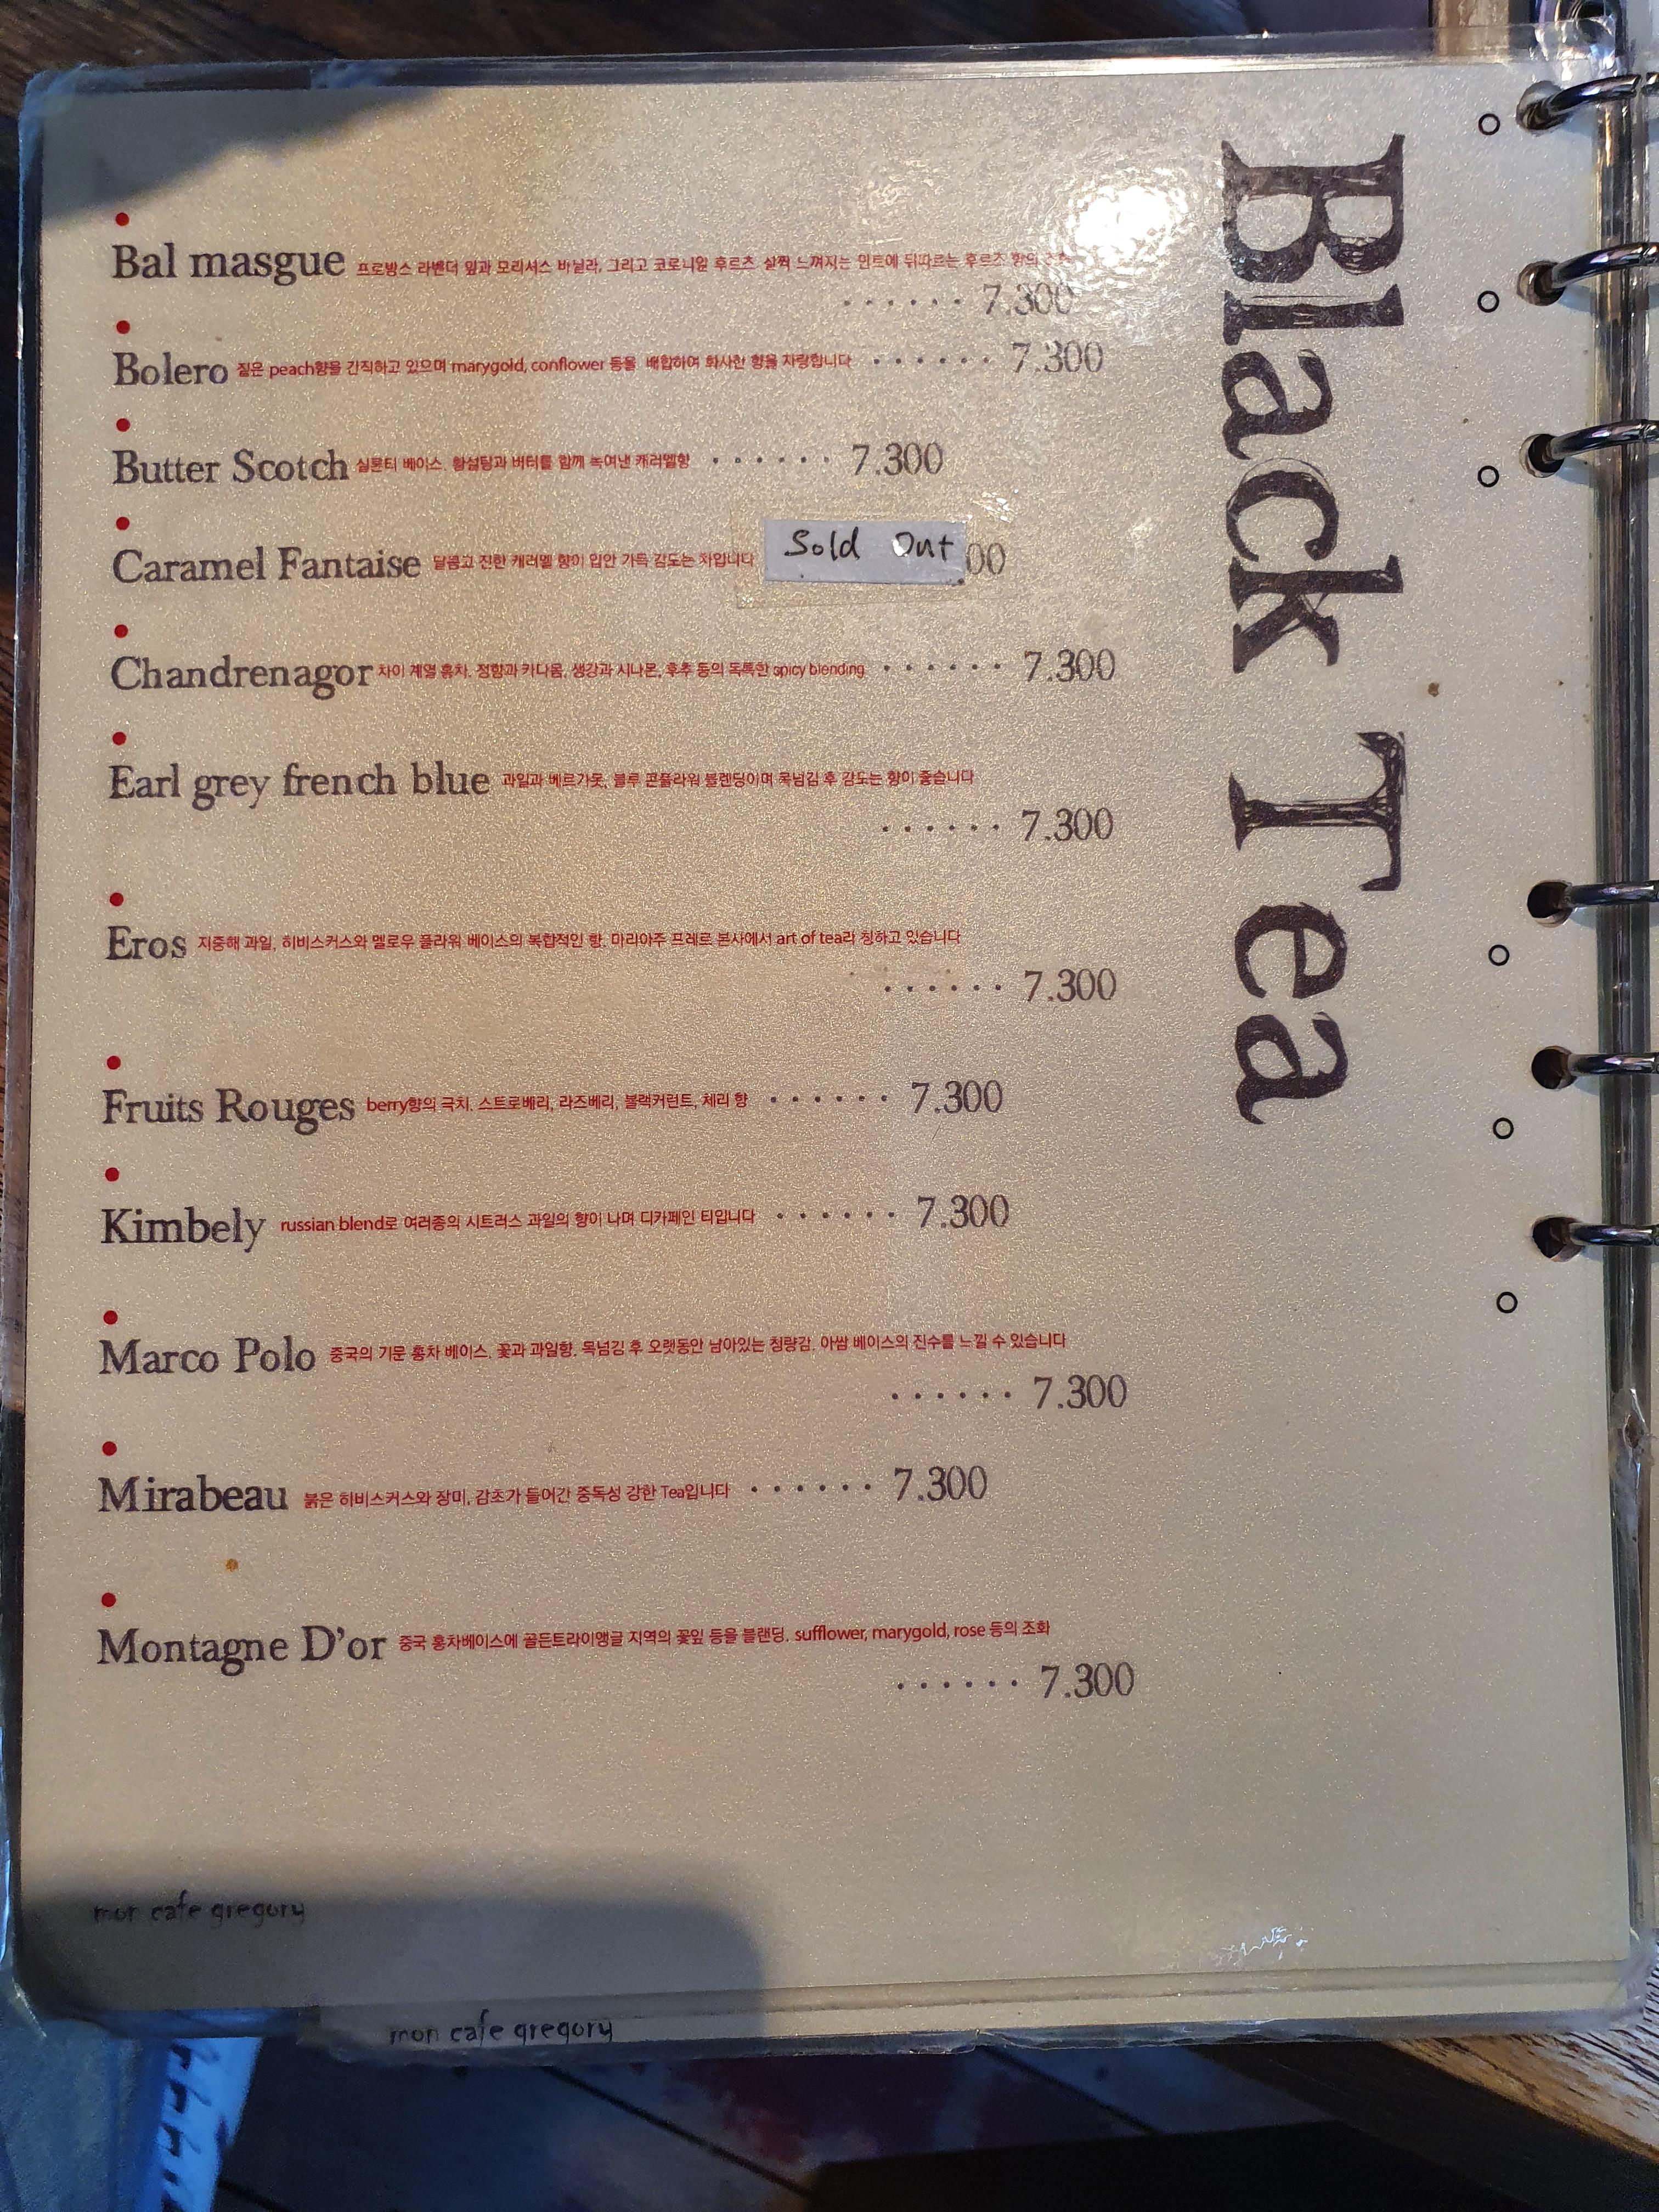 Black Tea
Bal masgue 프로방스 라벤더 잎과 모리셔스 바닐라, 그리고 코로니알 후르츠. 살짝 느껴지는 민트에 뒤따르는 후르츠 향의
· · · · · · 7.300
Bolero 짙은 peach향을 간직하고 있으며 marygold, conflower 등을 배합하여 화사한 향을 자랑합니다 · · · · · · 7.300
Butter Scotch 실론티 베이스. 황설탕과 버터를 함께 녹여낸 캐러멜향 · · · · · · 7.300
Caramel Fantaise 달콤고 진한 캐러멜 향이 입안 가득 감도는 차입니다 Sold Out 00
Chandrenagor 차이 계열 홍차. 정향과 카다몸, 생강과 시나몬, 후추 등의 독특한 spicy blending · · · · · · 7.300
Earl grey french blue 과일과 베르가못, 블루 콘플라워 블렌딩이며 목넘김 후 감도는 향이 좋습니다
· · · · · · 7.300
Eros 지중해 과일, 히비스커스와 멜로우 플라워 베이스의 복합적인 향. 마리아주 프레르 본사에서 art of tea라 칭하고 있습니다
· · · · · · 7.300
Fruits Rouges berry향의 극치. 스트로베리, 라즈베리, 블랙커런트, 체리 향 · · · · · · 7.300
Kimbely russian blend로 여러종의 시트러스 과일의 향이 나며 디카페인 티입니다 · · · · · · 7.300
Marco Polo 중국의 기문 홍차 베이스. 꽃과 과일향. 목넘김 후 오랫동안 남아있는 청량감. 아쌈 베이스의 진수를 느낄 수 있습니다
· · · · · · 7.300
Mirabeau 붉은 히비스커스와 장미, 감초가 들어간 중독성 강한 Tea입니다 · · · · · · 7.300
Montagne D'or 중국 홍차베이스에 골든트라이앵글 지역의 꽃잎 등을 블랜딩. sufflower, marygold, rose 등의 조화
· · · · · · 7.300
mon cafe gregory
mon cafe gregory